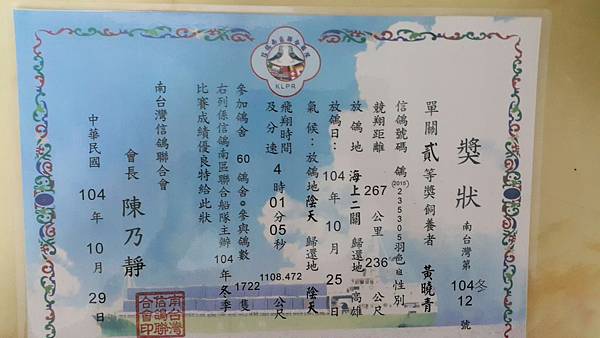 KLPR
獎狀
南台灣第104冬12號
單關貳等獎飼養者 黃曉青
信鴿號碼 鴿(2015)235305羽色 性別
競翔距離 267公里 236公尺
放鴿地 海上二關 歸還地 高雄
放鴿日:104年10月25日
氣候:放鴿地陰天 歸還地陰天
飛翔時間 4時01分05秒
及分速 1108.472公尺
參加鴿舍 60鴿舍。參與鴿數 1722隻
右列係信鴿南區聯合船隊主辦104年冬季
比賽成績優良特給此狀
南台灣信鴿聯合會
會長 陳乃靜
中華民國 104年10月29日
南台灣信鴿聯合會印